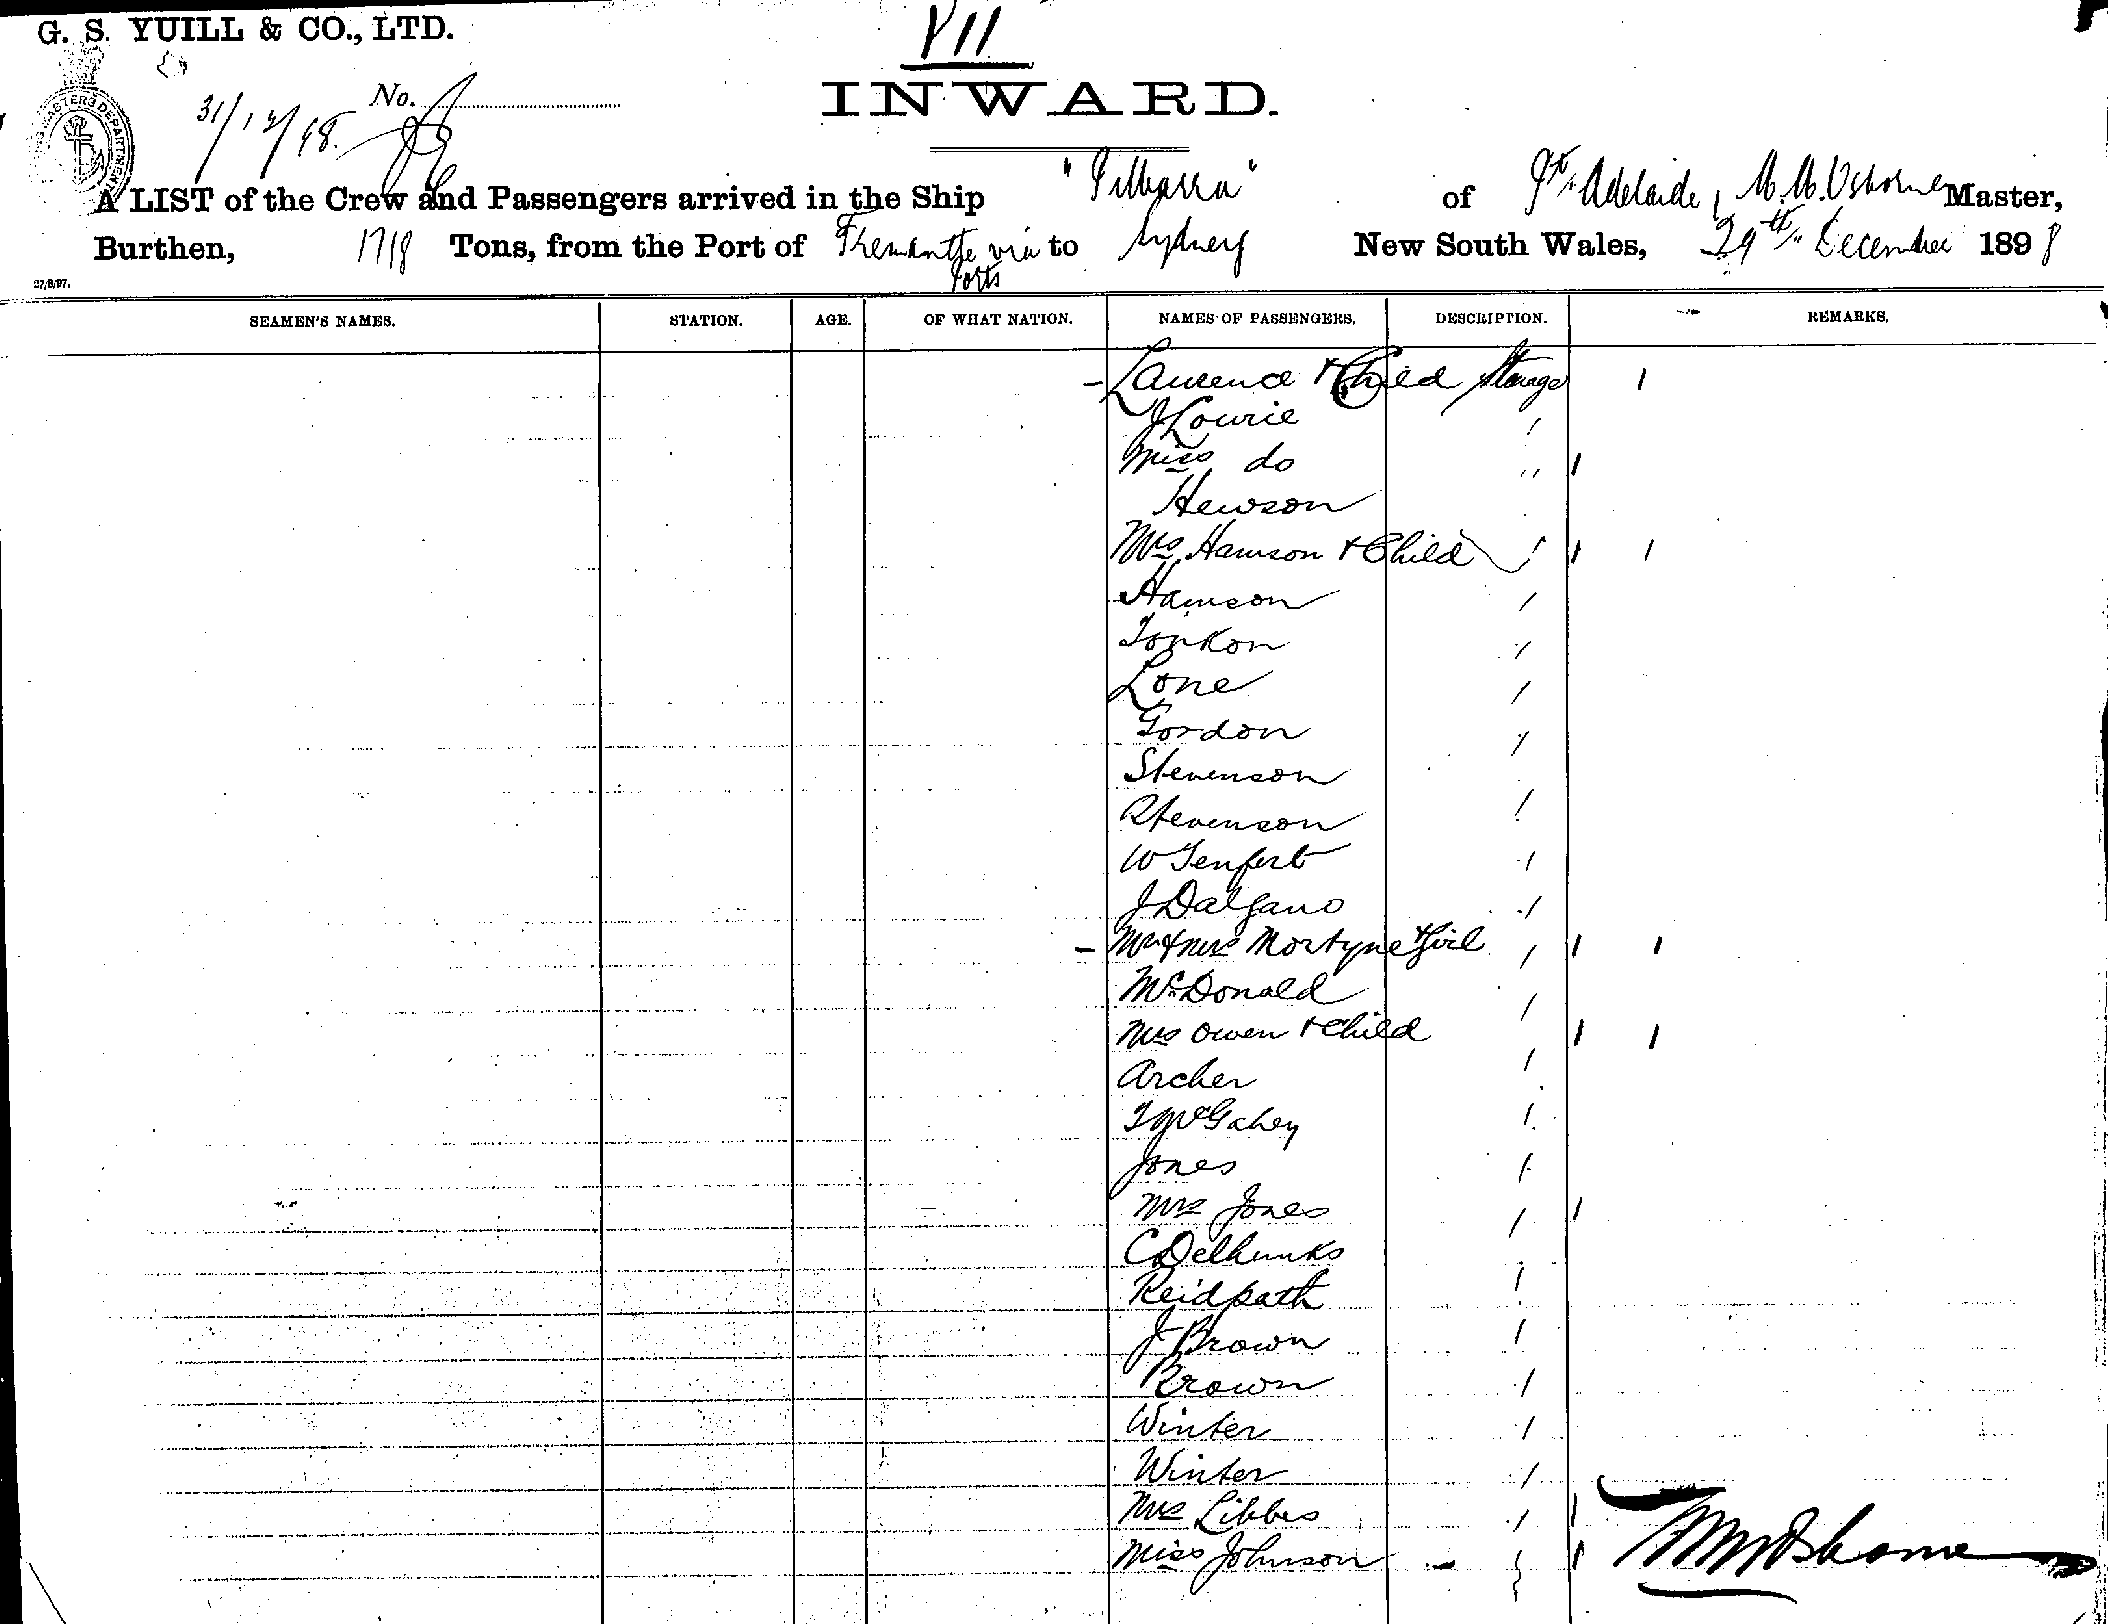 G. S. YUILL & CO., LTD.
VII
No.
31/12/98.
INWARD.
A LIST of the Crew and Passengers arrived in the Ship "Pilbarra" of Pt. Adelaide, Osborne Master,
Burthen, 1718 Tons, from the Port of Fremantle via Ports to Sydney New South Wales, 29th December 1898
27/8/97.
SEAMEN'S NAMES. STATION. AGE. OF WHAT NATION. NAMES OF PASSENGERS. DESCRIPTION. REMARKS.
Laurence & Child Steerage
J Lowrie
Miss do "
Hewson
Mrs Hamson & Child
Hamson
Tonkon
Lone
Gordon
Stevenson
Stevenson
W
J Dalgano
Mr & Mrs Mortyne & Girl
McDonald
Mrs Owen & Child
Archer
T McGahey
Jones
Mrs Jones
C Delhunks
Reidpath
J Brown
Brown
Winter
Winter
Mrs Libbes
Miss Johnson
Osborne